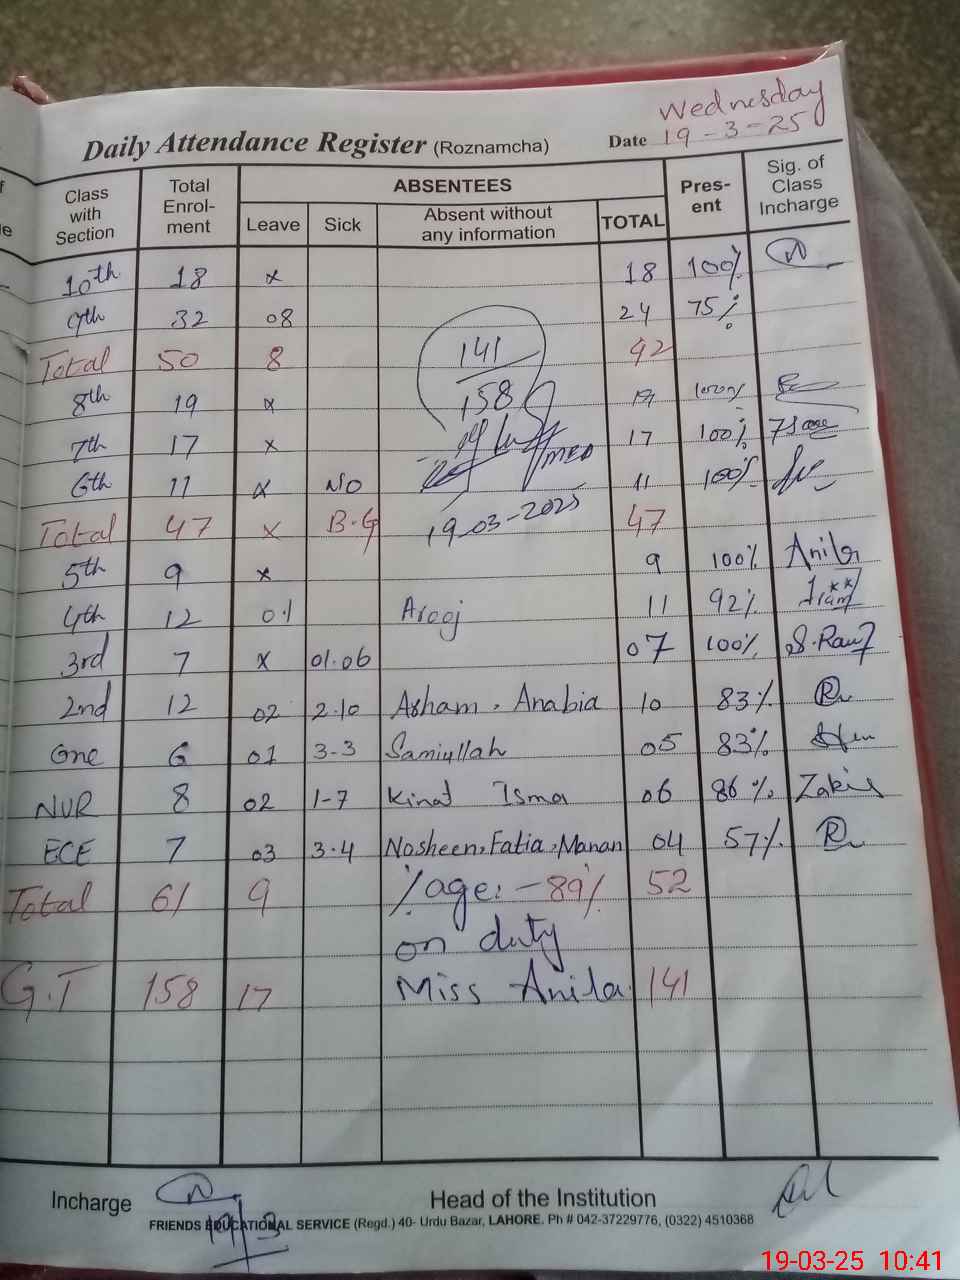 Wednesday
Daily Attendance Register (Roznamcha) Date 19-3-25
Class with Section Total Enrol-ment ABSENTEES Pres-ent Sig. of Class Incharge
Leave Sick Absent without any information TOTAL
10th 18 x 18 100%
9th 32 08 24 75%
Total 50 8 141 42
8th 19 x 158 19 100%
7th 17 x 17 100%
6th 11 x NO 11 100%
Total 47 x B.G 19-03-2025 47
5th 9 x 9 100% Anila
4th 12 01 Arooj 11 92% Iram
3rd 7 x 01.06 07 100% S.Rauf
2nd 12 02 2.10 Asham, Anabia 10 83%
One 6 01 3-3 Samiullah 05 83%
NUR 8 02 1-7 Kinat Isma 06 86%
ECE 7 03 3.4 Nosheen, Fatia, Manan 04 57%
Total 61 9 %age:-89% 52
on duty
G.T 158 17 Miss Anila 141
Incharge Head of the Institution
19/3
FRIENDS EDUCATIONAL SERVICE (Regd.) 40- Urdu Bazar, LAHORE. Ph # 042-37229776, (0322) 4510368
19-03-25 10:41